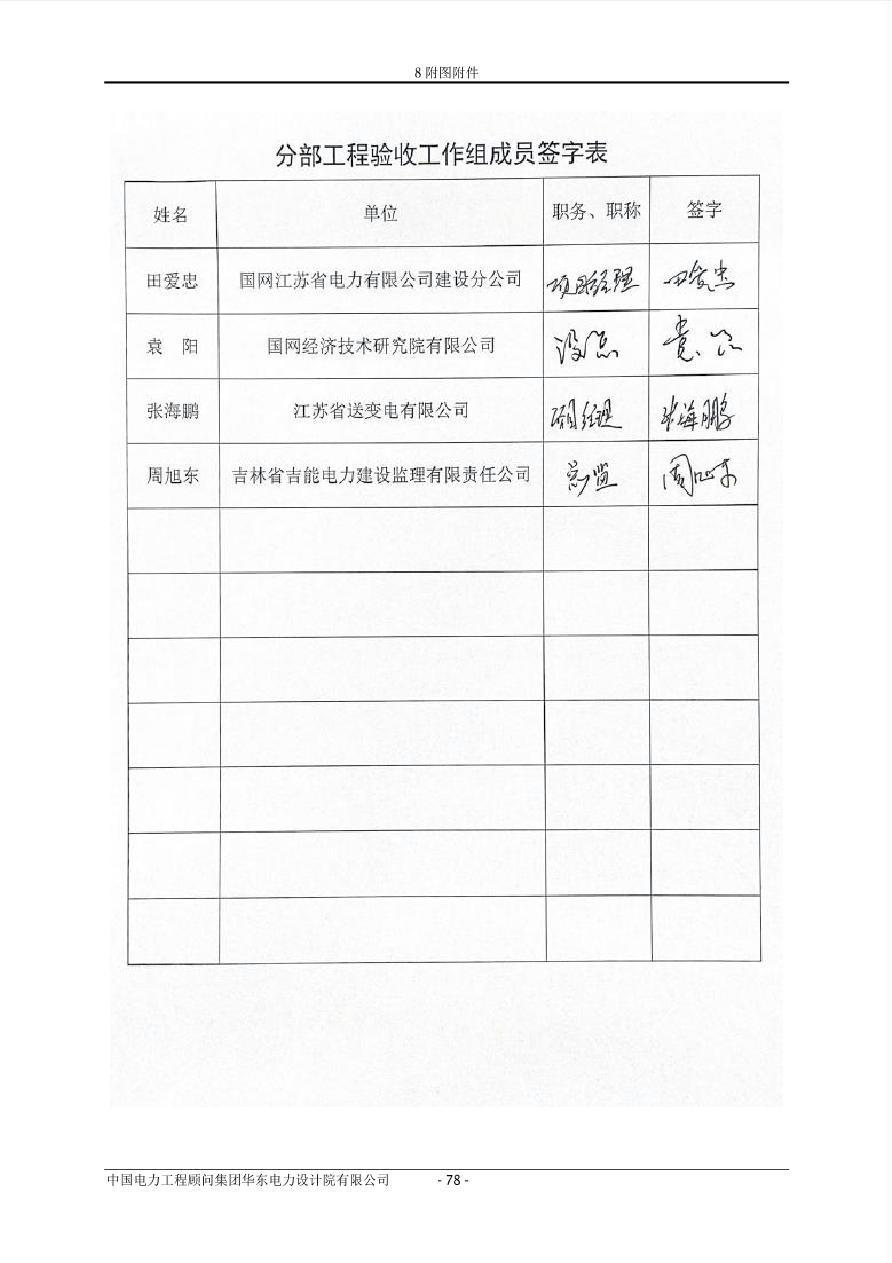 8 附图附件
分部工程验收工作组成员签字表
姓名 单位 职务、职称 签字
田爱忠 国网江苏省电力有限公司建设分公司 项目经理 田爱忠
袁 阳 国网经济技术研究院有限公司 设总
张海鹏 江苏省送变电有限公司 项目经理 张海鹏
周旭东 吉林省吉能电力建设监理有限责任公司 总监 周旭东
中国电力工程顾问集团华东电力设计院有限公司 - 78 -